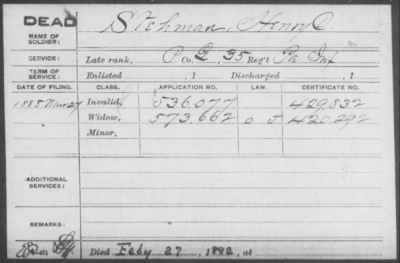 DEAD
NAME OF SOLDIER: Stehman, Henry C
SERVICE: Late rank, P Co. G, 35 Reg't Pa Inf
TERM OF SERVICE: Enlisted , 1 Discharged , 1
DATE OF FILING. CLASS. APPLICATION NO. LAW. CERTIFICATE NO.
1885 Mar 27 Invalid, 536.077 429,832
Widow, 573,662 0 5 420,292
Minor,
ADDITIONAL SERVICES:
REMARKS:
Died Feby 27, 1892, at